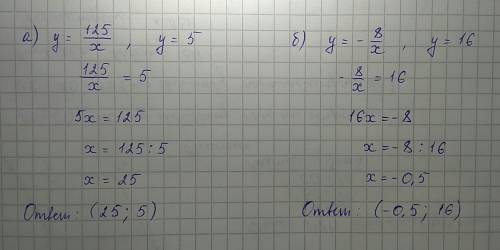 а) y = 125/x , y = 5
125/x = 5
5x = 125
x = 125 : 5
x = 25
Ответ: (25; 5)
б) y = - 8/x , y = 16
- 8/x = 16
16x = -8
x = -8 : 16
x = -0,5
Ответ: (-0,5; 16)